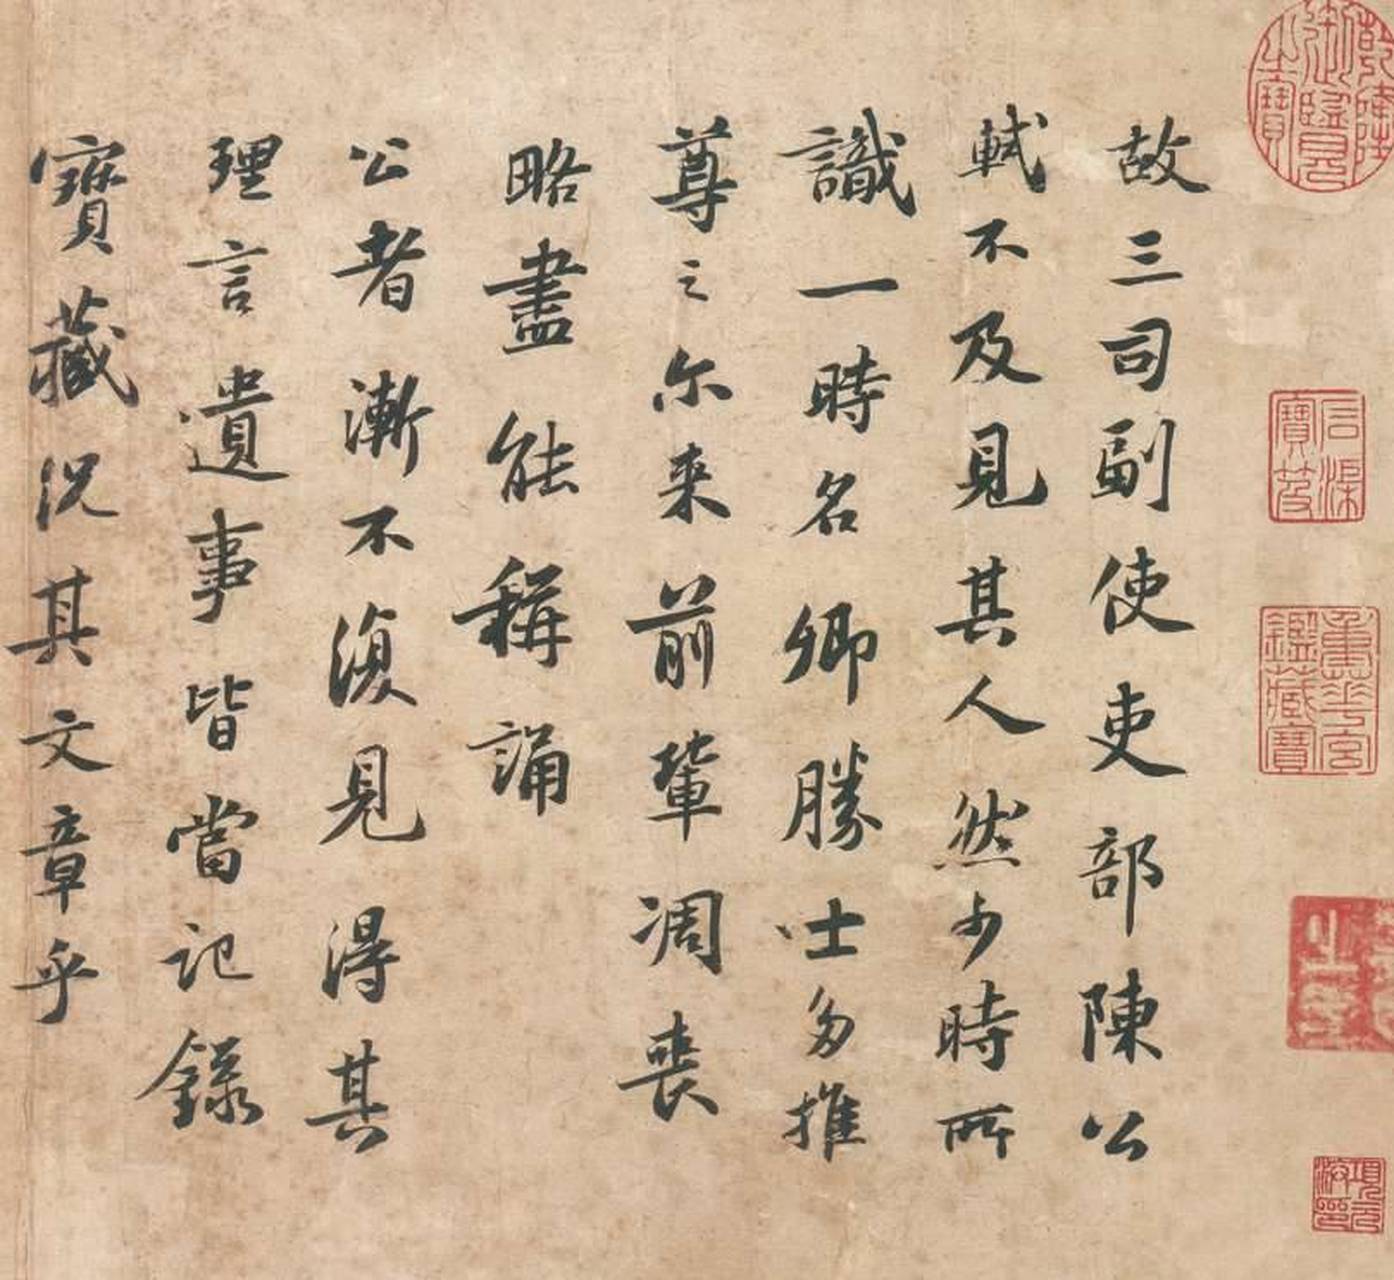 故三司副使吏部陳公
軾不及見其人然少時所
識一時名卿勝士多推
尊之尔来前輩凋喪
略盡能稱誦
公者漸不復見得其
理言遺事皆當記錄
寶藏況其文章乎
乾隆御覽之寶
石渠寶笈
重華宮鑑藏寶